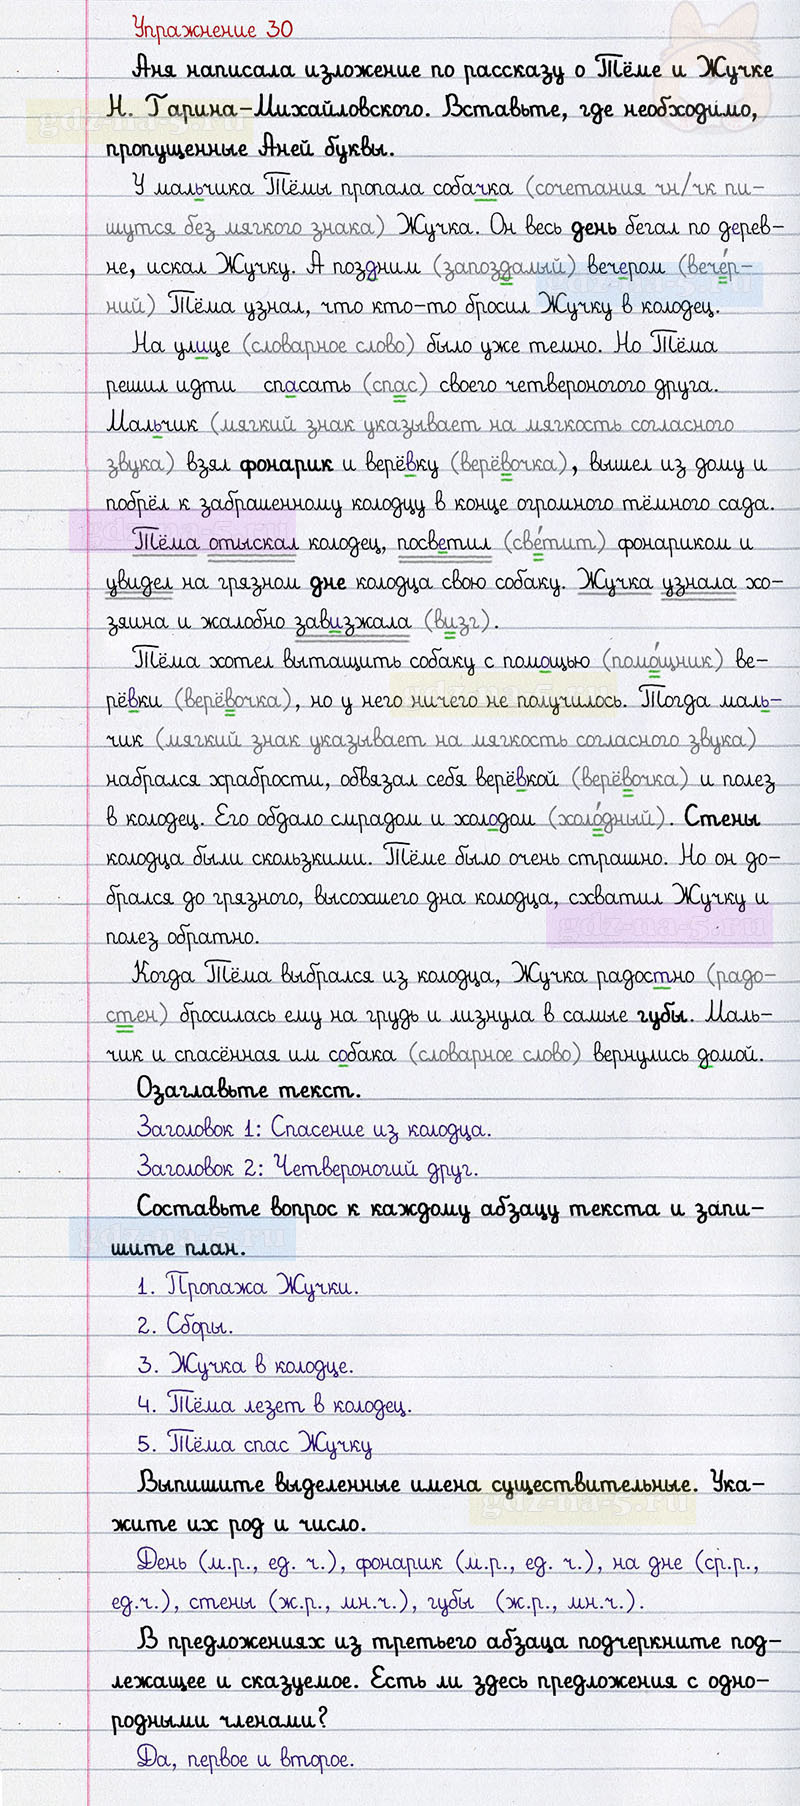 Упражнение 30
Аня написала изложение по рассказу о Тёме и Жучке
Н. Гарина-Михайловского. Вставьте, где необходимо,
gdz-na-5.ru
пропущенные Аней буквы.
У мальчика Тёмы пропала собачка (сочетания чн/чк пи-
шутся без мягкого знака) Жучка. Он весь день бегал по дерев-
не, искал Жучку. А поздним (запоздалый) вечером (вечер-
gdz-na-5.ru
ний) Тёма узнал, что кто-то бросил Жучку в колодец.
На улице (словарное слово) было уже темно. Но Тёма
решил идти спасать (спас) своего четвероногого друга.
Мальчик (мягкий знак указывает на мягкость согласного
звука) взял фонарик и верёвку (верёвочка), вышел из дому и
побрёл к заброшенному колодцу в конце огромного тёмного сада.
gdz-na-5.ru
Тёма отыскал колодец, посветил (светит) фонариком и
увидел на грязном дне колодца свою собаку. Жучка узнала хо-
зяина и жалобно завизжала (визг).
Тёма хотел вытащить собаку с помощью (помощник) ве-
gdz-na-5.ru
рёвки (верёвочка), но у него ничего не получилось. Тогда маль-
чик (мягкий знак указывает на мягкость согласного звука)
набрался храбрости, обвязал себя верёвкой (верёвочка) и полез
в колодец. Его обдало смрадом и холодом (холодный). Стены
колодца были скользкими. Тёме было очень страшно. Но он до-
брался до грязного, высохшего дна колодца, схватил Жучку и
gdz-na-5.ru
полез обратно.
Когда Тёма выбрался из колодца, Жучка радостно (радо-
стен) бросилась ему на грудь и лизнула в самые губы. Маль-
чик и спасённая им собака (словарное слово) вернулись домой.
Озаглавьте текст.
Заголовок 1: Спасение из колодца.
Заголовок 2: Четвероногий друг.
Составьте вопрос к каждому абзацу текста и запи-
gdz-na-5.ru
шите план.
1. Пропажа Жучки.
2. Сборы.
3. Жучка в колодце.
4. Тёма лезет в колодец.
5. Тёма спас Жучку
Выпишите выделенные имена существительные. Ука-
gdz-na-5.ru
жите их род и число.
День (м.р., ед. ч.), фонарик (м.р., ед. ч.), на дне (ср.р.,
ед.ч.), стены (ж.р., мн.ч.), губы (ж.р., мн.ч.).
В предложениях из третьего абзаца подчеркните под-
лежащее и сказуемое. Есть ли здесь предложения с одно-
родными членами?
Да, первое и второе.